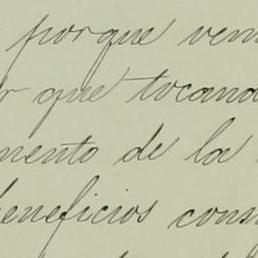 porque ven
que tocand
mento de la
beneficios con